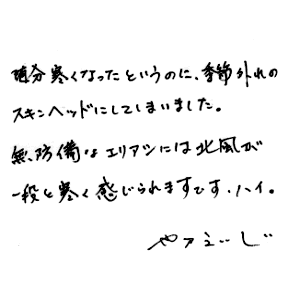 随分寒くなったというのに、季節外れの
スキンヘッドにしてしまいました。
無防備なエリアシには北風が
一段と寒く感じられますです、ハイ。